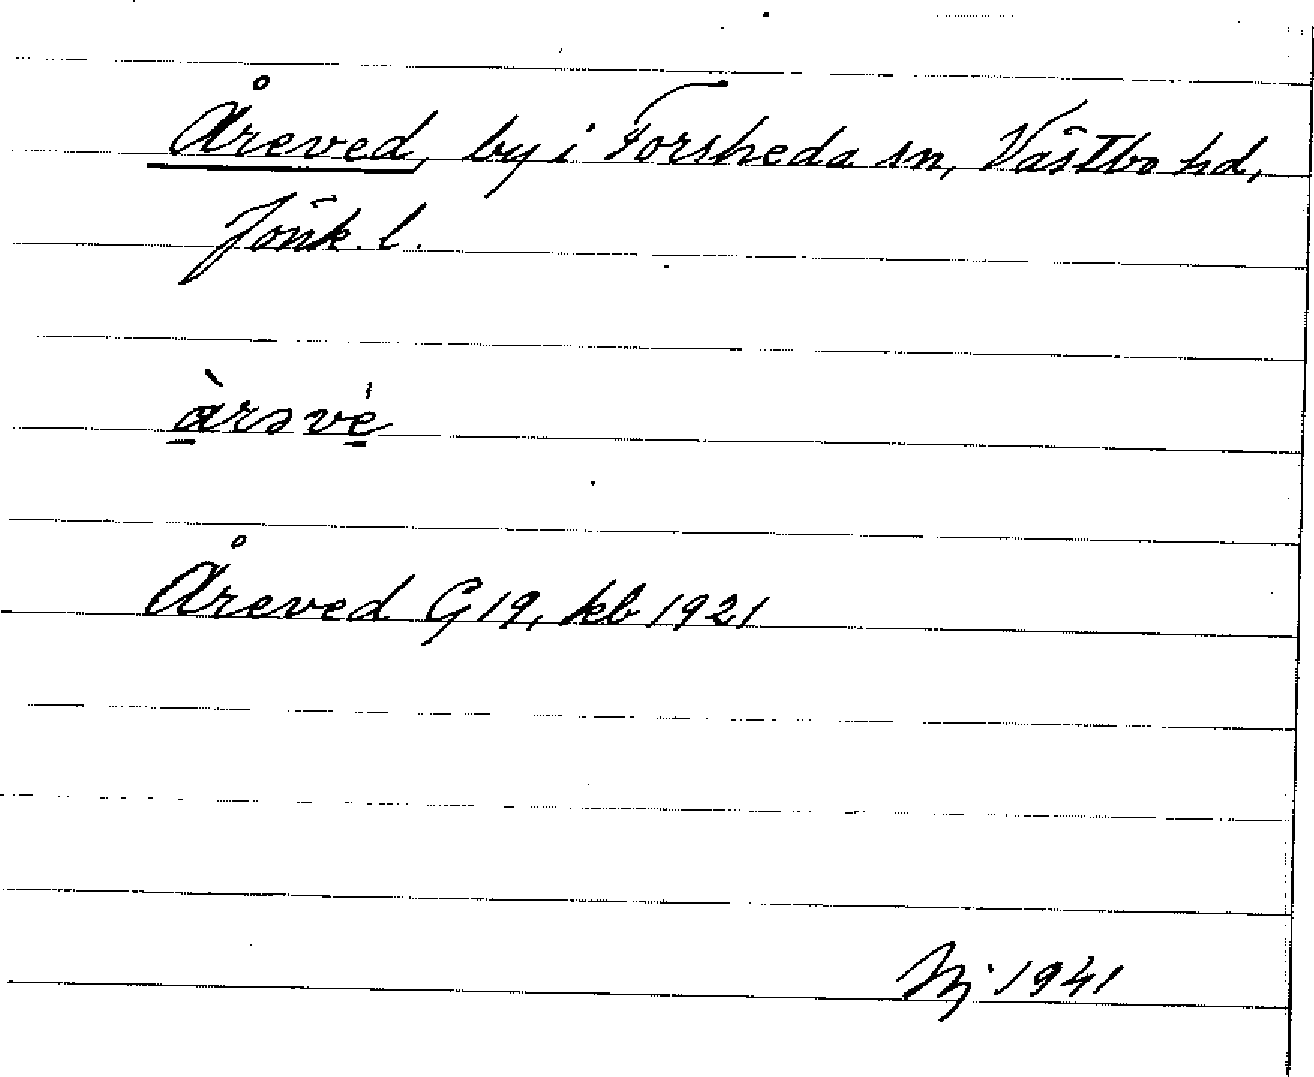 Åreved, by i Forsheda sn, Västbo hd,
Jönk. l.
àrəvé
Åreved G 19, kb 1921
1941